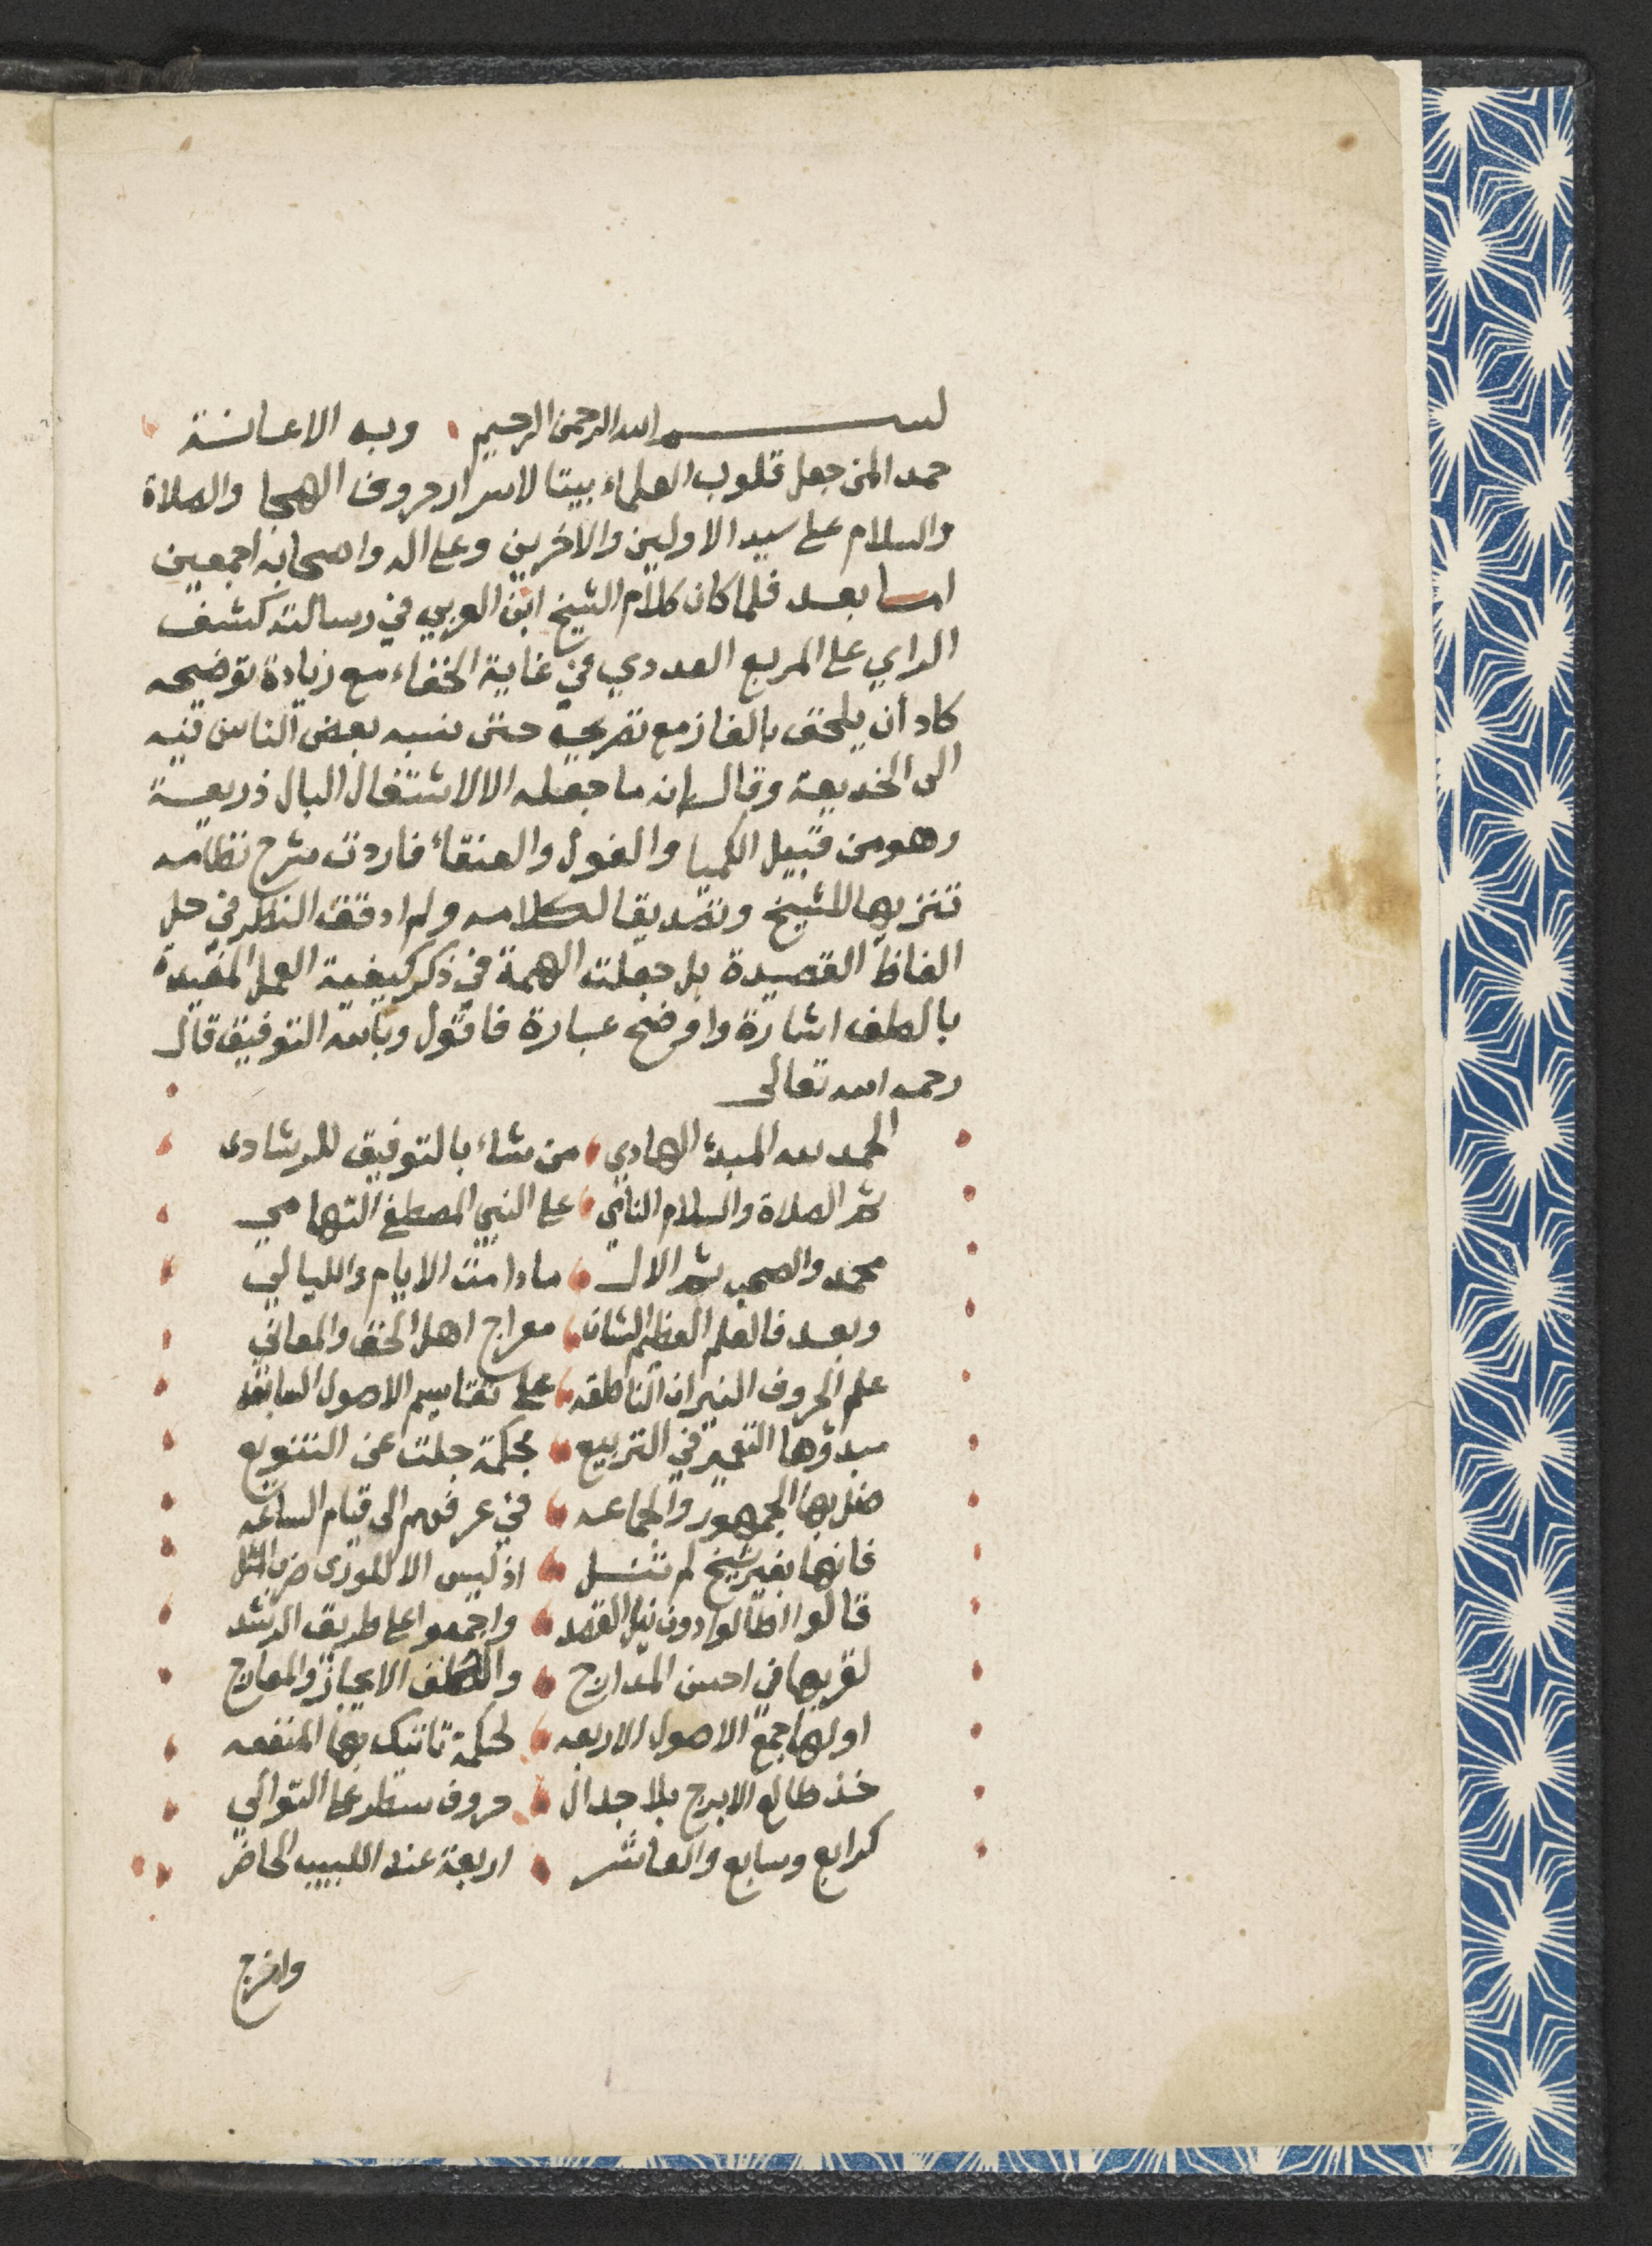 بسم الله الرحمن الرحيم وبه الاعانة
حمدا لمن جعل قلوب العلماء بيتا لاسرار حروف الهجا والصلاة
والسلام على سيد الاولين والاخرين وعلى اله واصحابه اجمعين
اما بعد فلما كان كلام الشيخ ابن العربي في رسالته كشف
الراي على المربع العددي في غاية الخفاء مع زيادة توضيحه
كاد أن يلحق بإلغاز مع تصريحه حتى نسبه بعض الناس فيه
الى الخديعة وقال إنه ما جعله الا لاشتغال البال ذريعة
وهو من قبيل الكميا والغول والعنقاء فاردت شرح نظامه
تنزيها للشيخ وتصديقا لكلامه ولم ادقق النظر في حل
الفاظ القصيدة بل جعلت الهمة في ذكر كيفية العمل المفيدة
بالطف اشارة واوضح عبارة فاقول وبالله التوفيق قال
رحمه الله تعالى
الحمد لله المبدئ الهادي من شاء بالتوفيق للرشادى
ثم الصلاة والسلام النامي على النبي المصطفى التهامي
محمد والصحب ثم الال ما دامت الايام والليالي
وبعد فالعلم العظيم الشان معراج اهل الحق والمعاني
علم الحروف النيران الناطقه على تقاسيم الاصول السابقه
مبدؤها التعمير في التربيع بحكمة جلت عن التنويع
ضل بها الجمهور والجماعه في عرفهم الى قيام الساعه
فانها بغير شيخ لم تنل اذ ليس الا للورى ضرب المثل
قالوا اطالوا دون نيل القصد واجمعوا على طريق الرشد
لقربها في احسن المدارج والطف الايجاز والمعارج
اولها جمع الاصول الاربعه لحكمة تاتيك بها المنفعه
خذ طالع الابرج بلا جدال حروف سطر على التوالي
كرابع وسابع والعاشر اربعة عند اللبيب الحاضر
واخرج